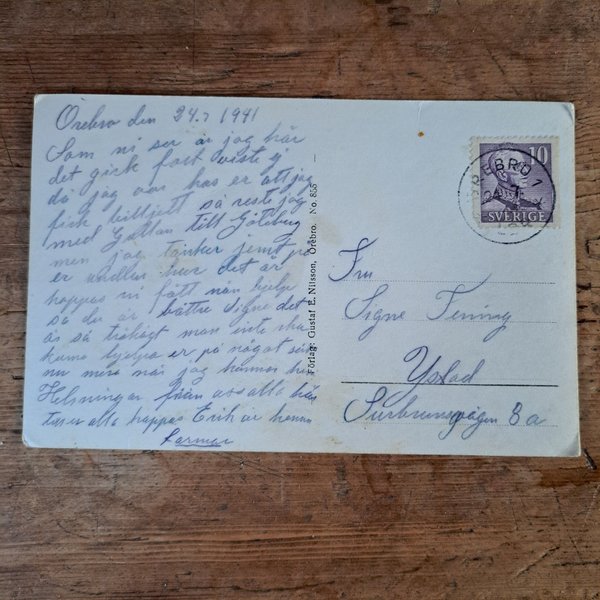 Örebro den 24.7 1941
Som ni ser är jag här
det gick fort viste ej
då jag var hos er att jag
fick billjett så reste jag
med Gottan till Göteborg
men jag tänker jemt på
er undrar hur det är
hoppas ni fått nån hjelp
så du är bättre Signe det
är så tråkigt man inte ska
kunna hjelpa er på något sätt
nu mera när jag kommer hem
Helsningar från oss alla här
er alla hoppas Erik är hemma
Förlag: Gustaf E. Nilsson, Örebro. No. 855
ÖREBRO 1
10
SVERIGE
Fru
Signe
Ystad
Surbrunnsvägen 8 a